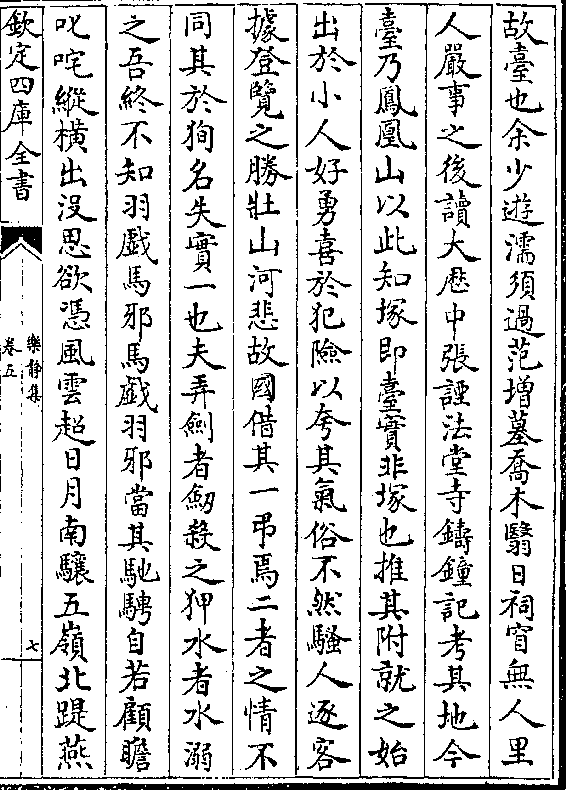 故臺也余少遊濡須過范增墓喬木翳日祠宫無人里
人嚴事之後讀大厯中張諲法堂寺鑄鐘記考其地今
臺乃鳳凰山以此知塚即臺實非塚也推其附就之始
出於小人好勇喜於犯險以夸其氣俗不然騷人逐客
據登覽之勝壯山河悲故國借其一弔焉二者之情不
同其於狥名失實一也夫弄劒者劒殺之狎水者水溺
之吾終不知羽戲馬邪馬戲羽邪當其馳騁自若顧瞻
叱咤縱橫出没思欲憑風雲超日月南驤五嶺北踶燕
欽定四庫全書
樂静集
卷五
七